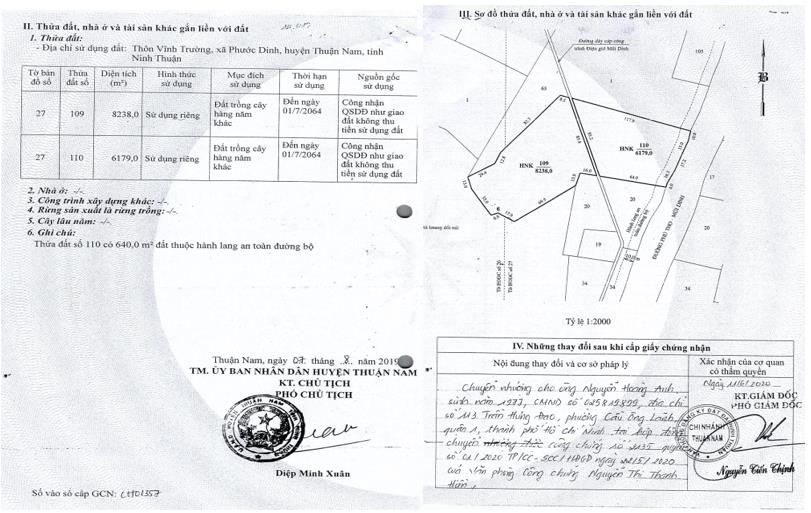 II. Thửa đất, nhà ở và tài sản khác gắn liền với đất
1. Thửa đất:
- Địa chỉ sử dụng đất: Thôn Vĩnh Trường, xã Phước Dinh, huyện Thuận Nam, tỉnh
Ninh Thuận
Tờ bản đồ số | Thửa đất số | Diện tích (m²) | Hình thức sử dụng | Mục đích sử dụng | Thời hạn sử dụng | Nguồn gốc sử dụng
27 | 109 | 8238,0 | Sử dụng riêng | Đất trồng cây hàng năm khác | Đến ngày 01/7/2064 | Công nhận QSDĐ như giao đất không thu tiền sử dụng đất
27 | 110 | 6179,0 | Sử dụng riêng | Đất trồng cây hàng năm khác | Đến ngày 01/7/2064 | Công nhận QSDĐ như giao đất không thu tiền sử dụng đất
2. Nhà ở: -/-
3. Công trình xây dựng khác: -/-
4. Rừng sản xuất là rừng trồng: -/-
5. Cây lâu năm: -/-
6. Ghi chú:
Thửa đất số 110 có 640,0 m² đất thuộc hành lang an toàn đường bộ
Thuận Nam, ngày 07 tháng 8 năm 2019
TM. ỦY BAN NHÂN DÂN HUYỆN THUẬN NAM
KT. CHỦ TỊCH
PHÓ CHỦ TỊCH
Diệp Minh Xuân
Số vào sổ cấp GCN: CH01357
III. Sơ đồ thửa đất, nhà ở và tài sản khác gắn liền với đất
Đường dây cáp công
trình Điện gió Mũi Dinh
105
1
65
1
B
8,5
127,9
HNK 110
6179,0
HNK 109
8238,0
16,0
64,0
17
20
20
20
6
19
34
34
Hành lang an
toàn đường bộ
ĐƯỜNG PHÚ THỌ - MŨI DINH
Tờ BĐĐC số 26
Tờ BĐĐC số 27
Tỷ lệ 1:2000
IV. Những thay đổi sau khi cấp giấy chứng nhận
Nội dung thay đổi và cơ sở pháp lý
Xác nhận của cơ quan
có thẩm quyền
Chuyển nhượng cho ông Nguyễn Hoàng Anh
sinh năm 1977, CMND số 025819899, địa chỉ
số 113 Trần Hưng Đạo, phường Cầu Ông Lãnh,
quận 1, thành phố Hồ Chí Minh theo hợp đồng
chuyển nhượng công chứng số 2135 quyển
số 01/2020 TP/CC-SCC/HĐGD ngày 22/5/2020
của Văn phòng Công chứng Nguyễn Thị Thanh
Hiền.
Ngày 11/6/2020
KT.GIÁM ĐỐC
PHÓ GIÁM ĐỐC
CHI NHÁNH
THUẬN NAM
Nguyễn Tiến Chinh